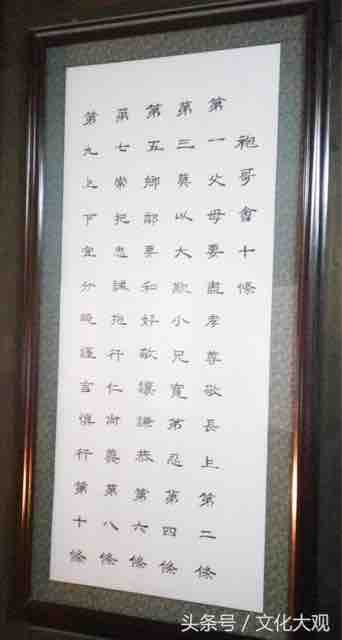 袍哥會十條
第一父母要盡孝尊敬長上第二條
第三莫以大欺小兄寬弟忍第四條
第五鄉鄰要和好敬讓謙恭第六條
第七常把忠誠抱行仁尚義第八條
第九上下宜分曉謹言慎行第十條
头条号 / 文化大观